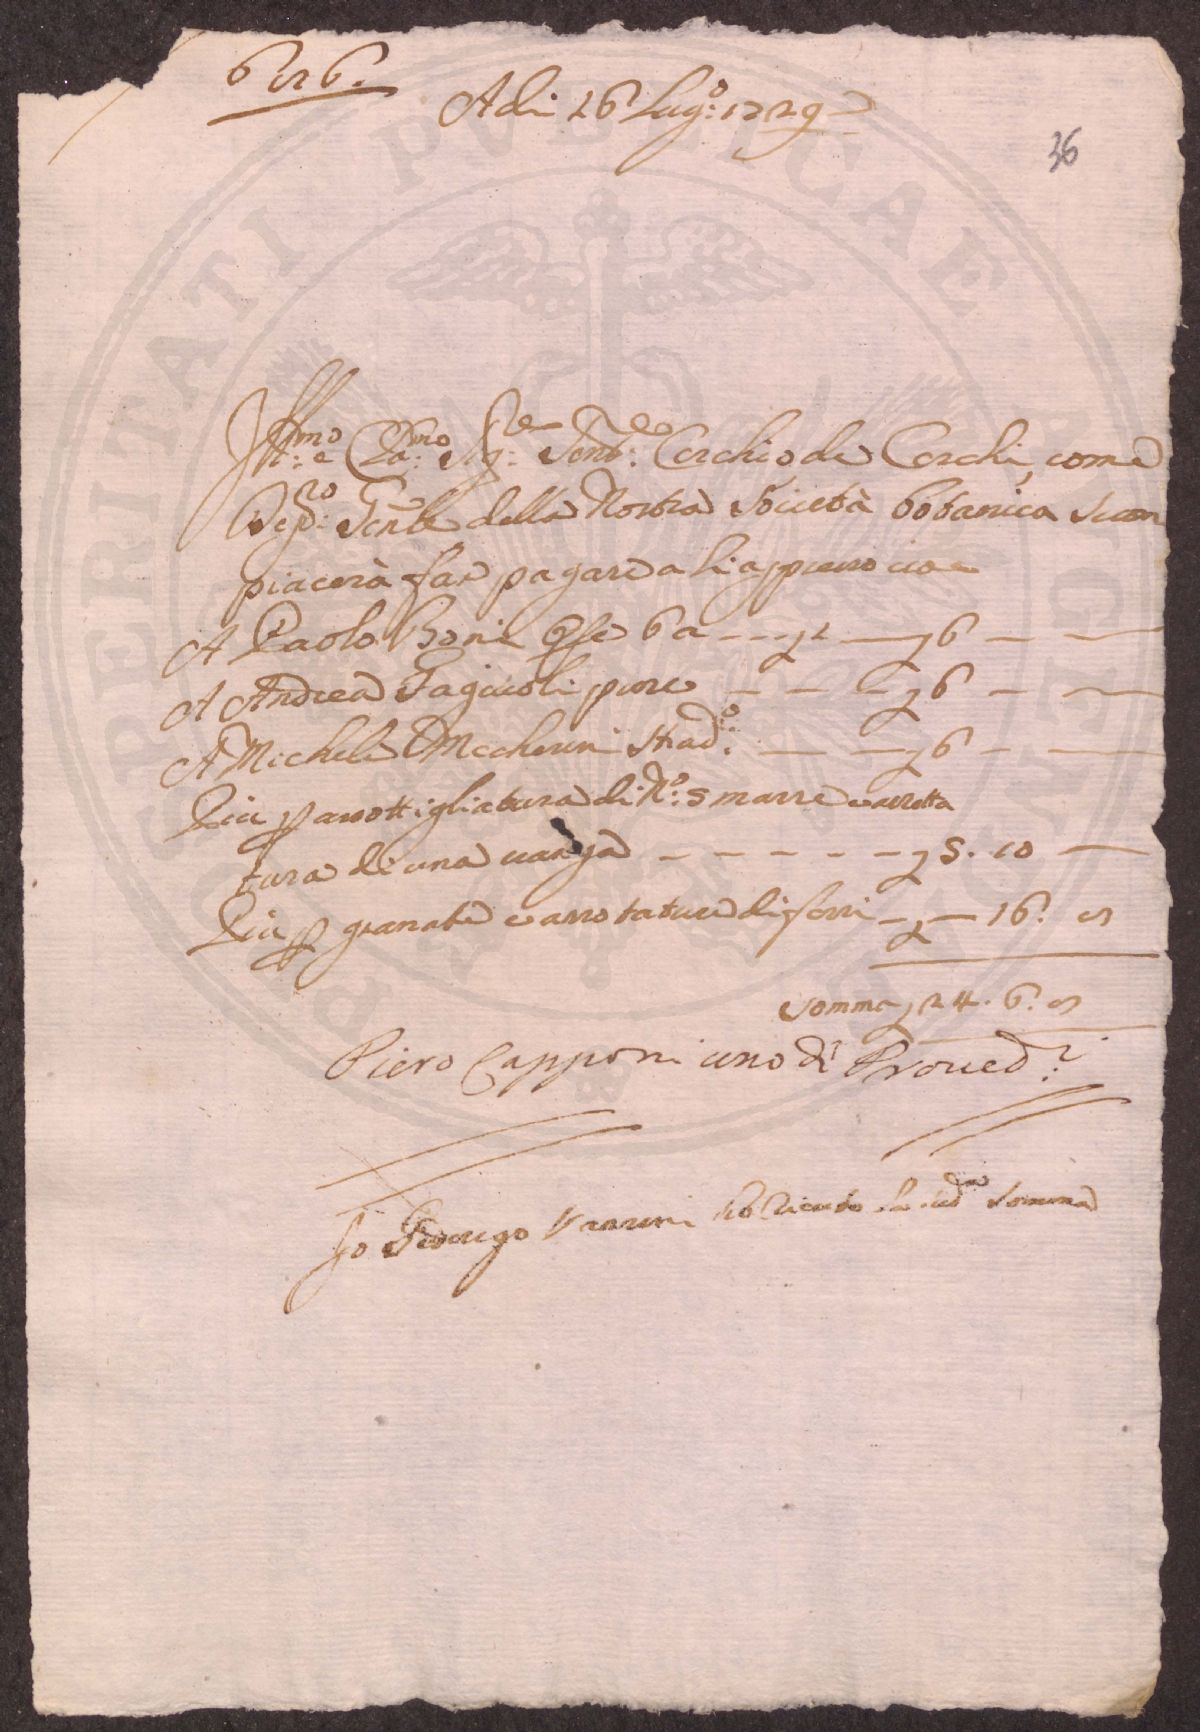 6 n 6.
Adi 26 Lug.o 1729
36
Ill.mo e Cla.mo Sig.re Senb.e Cerchio de Cerchi, come
Dep.to Sente della Nostra Società bobanica si com
piacerà far pagare a li appresso cioe
A Paolo Boni Gste 6 a --- £1 — £6 — —
A Andrea Fagiuoli pure — — — £6 — —
A Michele Mecherini Strad.o — — £6 — —
Più p assottigliatura di N.o 5 marre e assetta
tura di una vanga — — — — — — £5. 10 —
Più p granate e arrotature di ferri — £ — 16. n
Somma £24. 6. n
Piero Capponi uno di Proued.ri
Io Federigo Vannini ho riceuto la sud.a Somma
PROSPERITATI PVBLICAE